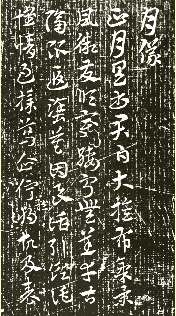 月儀
正月具書君白大蔟布氣景
風微發順變綏寧無恙幸甚
隔限遐塗莫因良話引領托
懷情過采葛企佇難將故及表